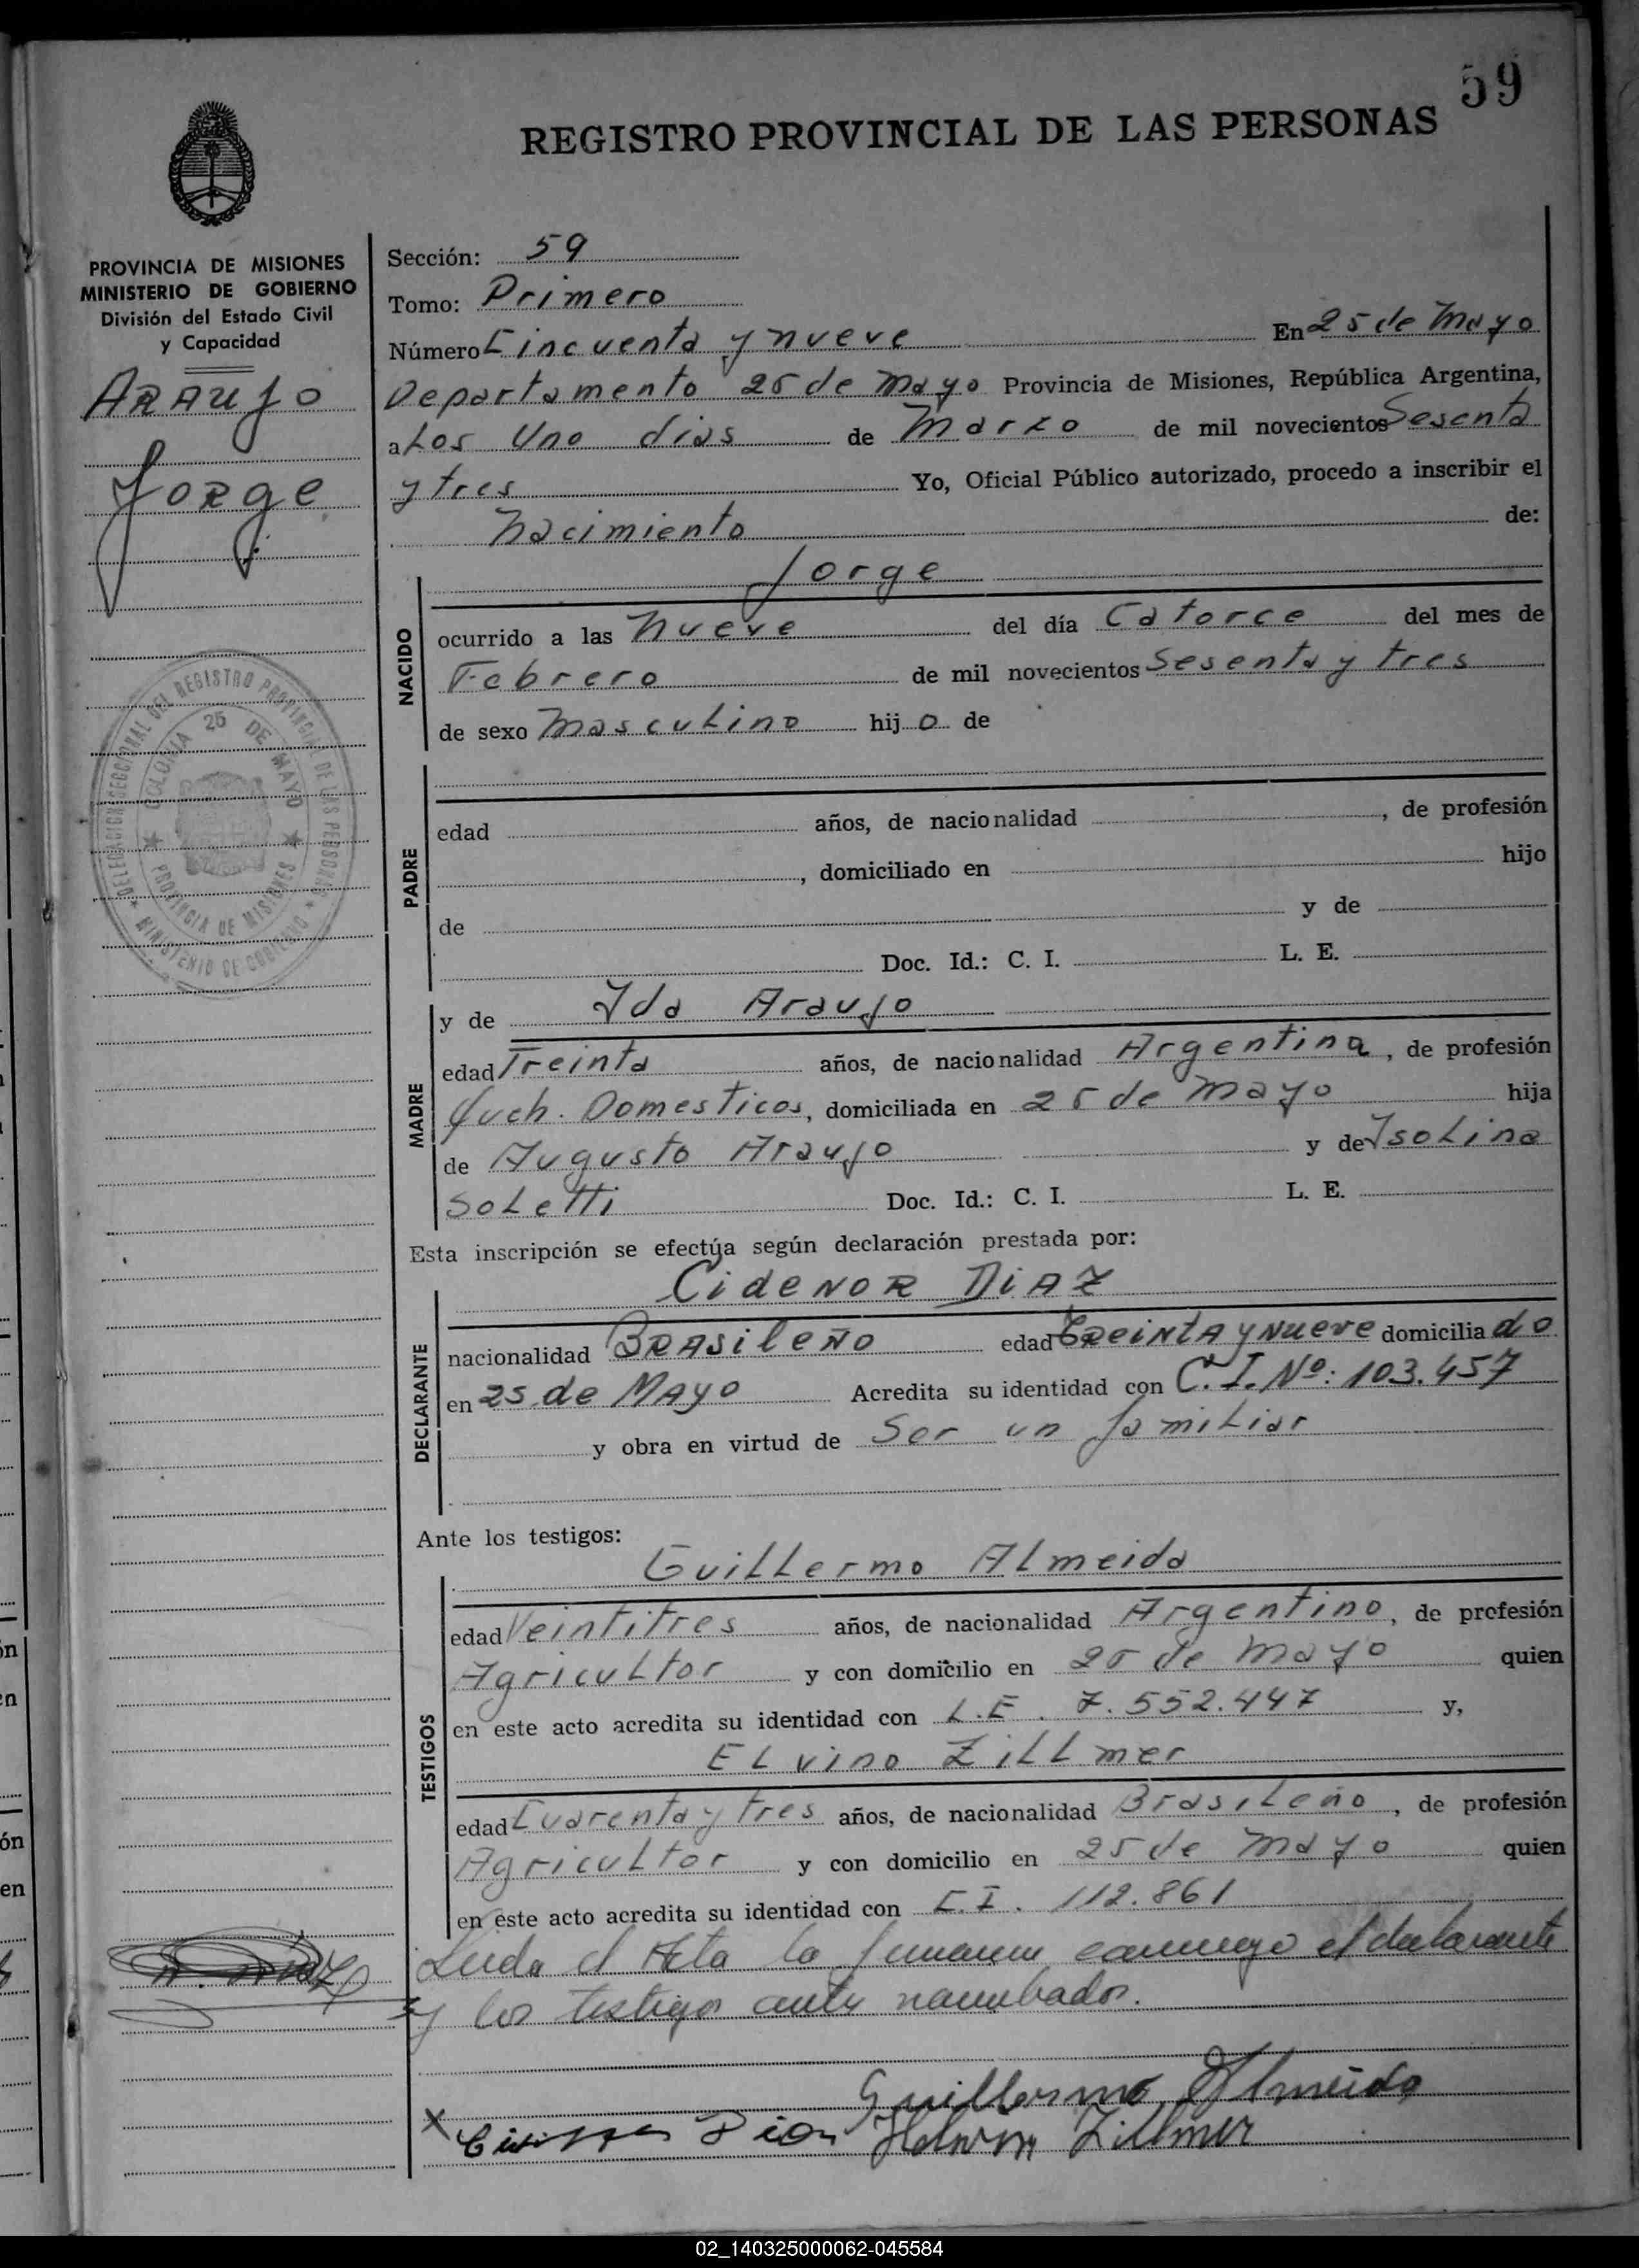 59
REGISTRO PROVINCIAL DE LAS PERSONAS
PROVINCIA DE MISIONES
MINISTERIO DE GOBIERNO
División del Estado Civil
y Capacidad
ARAUJO
JORGE
DELEGACION SECCIONAL DEL REGISTRO PROVINCIAL DE LAS PERSONAS
COLONIA 25 DE MAYO
PROVINCIA DE MISIONES
MINISTERIO DE GOBIERNO
Sección: 59
Tomo: Primero
Número Cincuenta y nueve En 25 de Mayo
Departamento 25 de Mayo Provincia de Misiones, República Argentina,
a Los Uno dias de Marzo de mil novecientos Sesenta
y tres Yo, Oficial Público autorizado, procedo a inscribir el
Nacimiento de:
Jorge
NACIDO
ocurrido a las Nueve del día Catorce del mes de
Febrero de mil novecientos Sesenta y tres
de sexo Masculino hijo de
PADRE
edad años, de nacionalidad , de profesión
, domiciliado en hijo
de y de
Doc. Id.: C. I. L. E.
MADRE
y de Ida Araujo
edad Treinta años, de nacionalidad Argentina, de profesión
Queh. Domesticos, domiciliada en 25 de Mayo hija
de Augusto Araujo y de Isolina
Soletti Doc. Id.: C. I. L. E.
Esta inscripción se efectúa según declaración prestada por:
CideNOR DiAZ
DECLARANTE
nacionalidad BRASileÑO edad tReiNtA y Nueve domiciliado
en 25 de MAyo Acredita su identidad con C.I. Nº: 103.457
y obra en virtud de Ser un familiar
Ante los testigos:
Guillermo Almeida
TESTIGOS
edad Veintitres años, de nacionalidad Argentino, de profesión
Agricultor y con domicilio en 25 de Mayo quien
en este acto acredita su identidad con L.E. 7.552.447 y,
Elvino Zillmer
edad Cuarenta y tres años, de nacionalidad Brasileño, de profesión
Agricultor y con domicilio en 25 de Mayo quien
en este acto acredita su identidad con C.I. 112.861
Leida el Acta la conmigo el declarante
y los testigos ante nombados.
Guillermo Almeida
x Diaz Zillmer
02_140325000062-045584